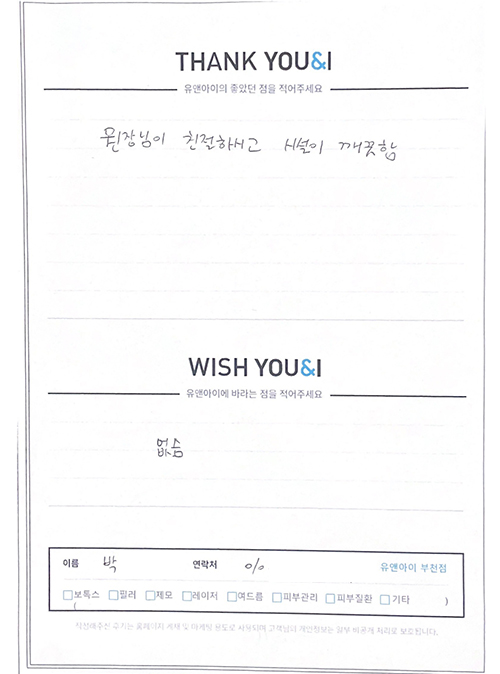 THANK YOU&I
유앤아이의 좋았던 점을 적어주세요
원장님이 친절하시고 시설이 깨끗함
WISH YOU&I
유앤아이에 바라는 점을 적어주세요
없슴
이름 박 연락처 010 유앤아이 부천점
보톡스 필러 제모 레이저 여드름 피부관리 피부질환 기타
( )
작성해주신 후기는 홈페이지 게재 및 마케팅 용도로 사용되며 고객님의 개인정보는 일부 비공개 처리로 보호됩니다.